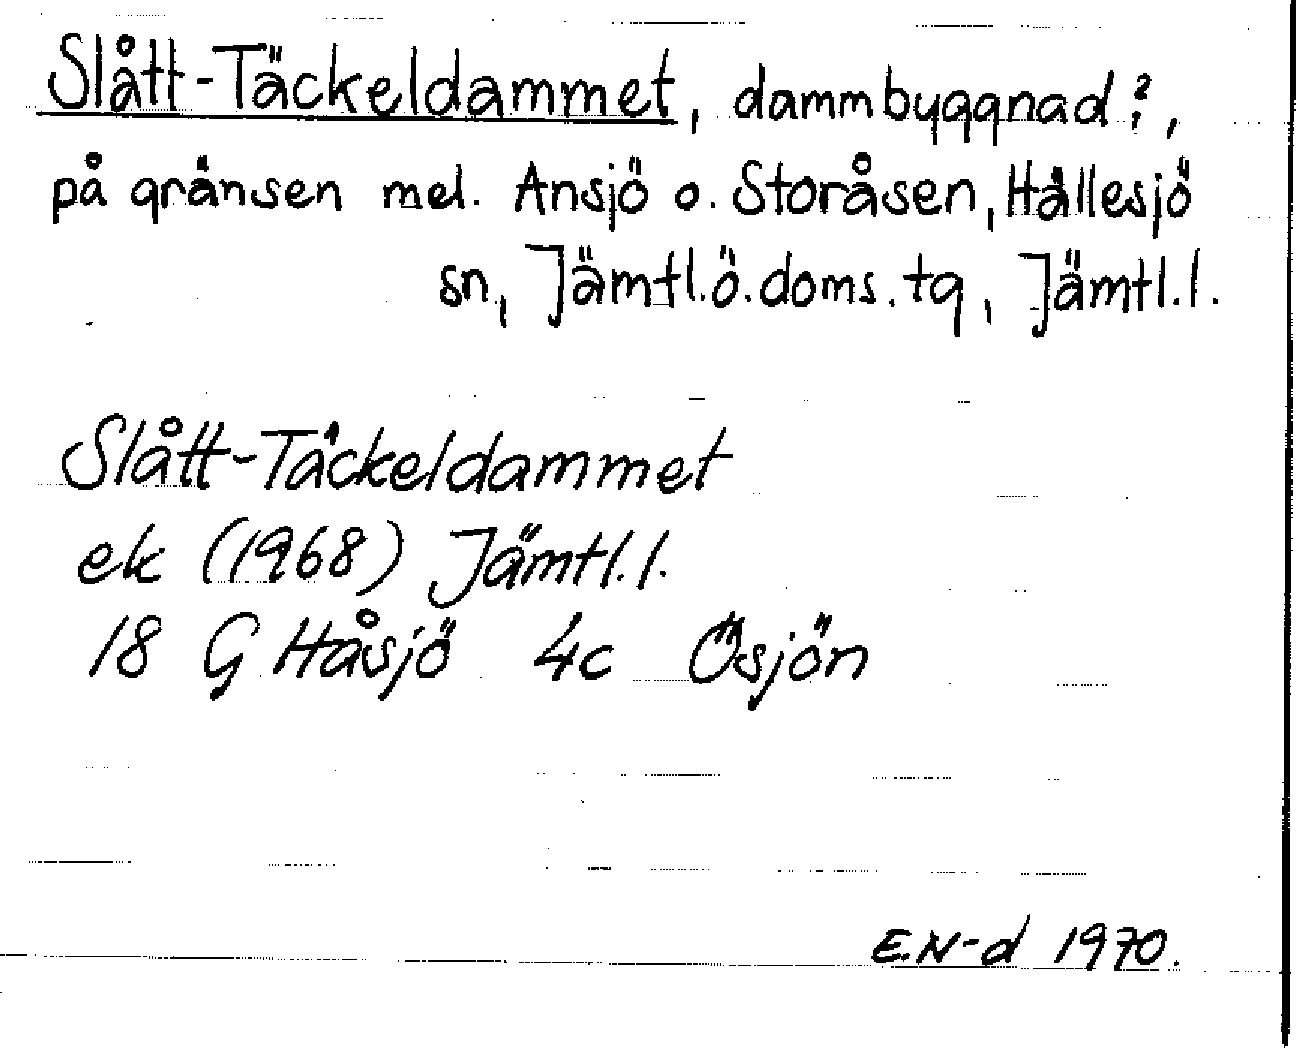 Slått-Täckeldammet, dammbyggnad?,
på gränsen mel. Ansjö o. Storåsen, Hällesjö
sn, Jämtl.ö.doms.tg, Jämtl.l.
Slått-Täckeldammet
ek (1968) Jämtl.l.
18 G Håsjö 4c Ösjön
E.N-d 1970.